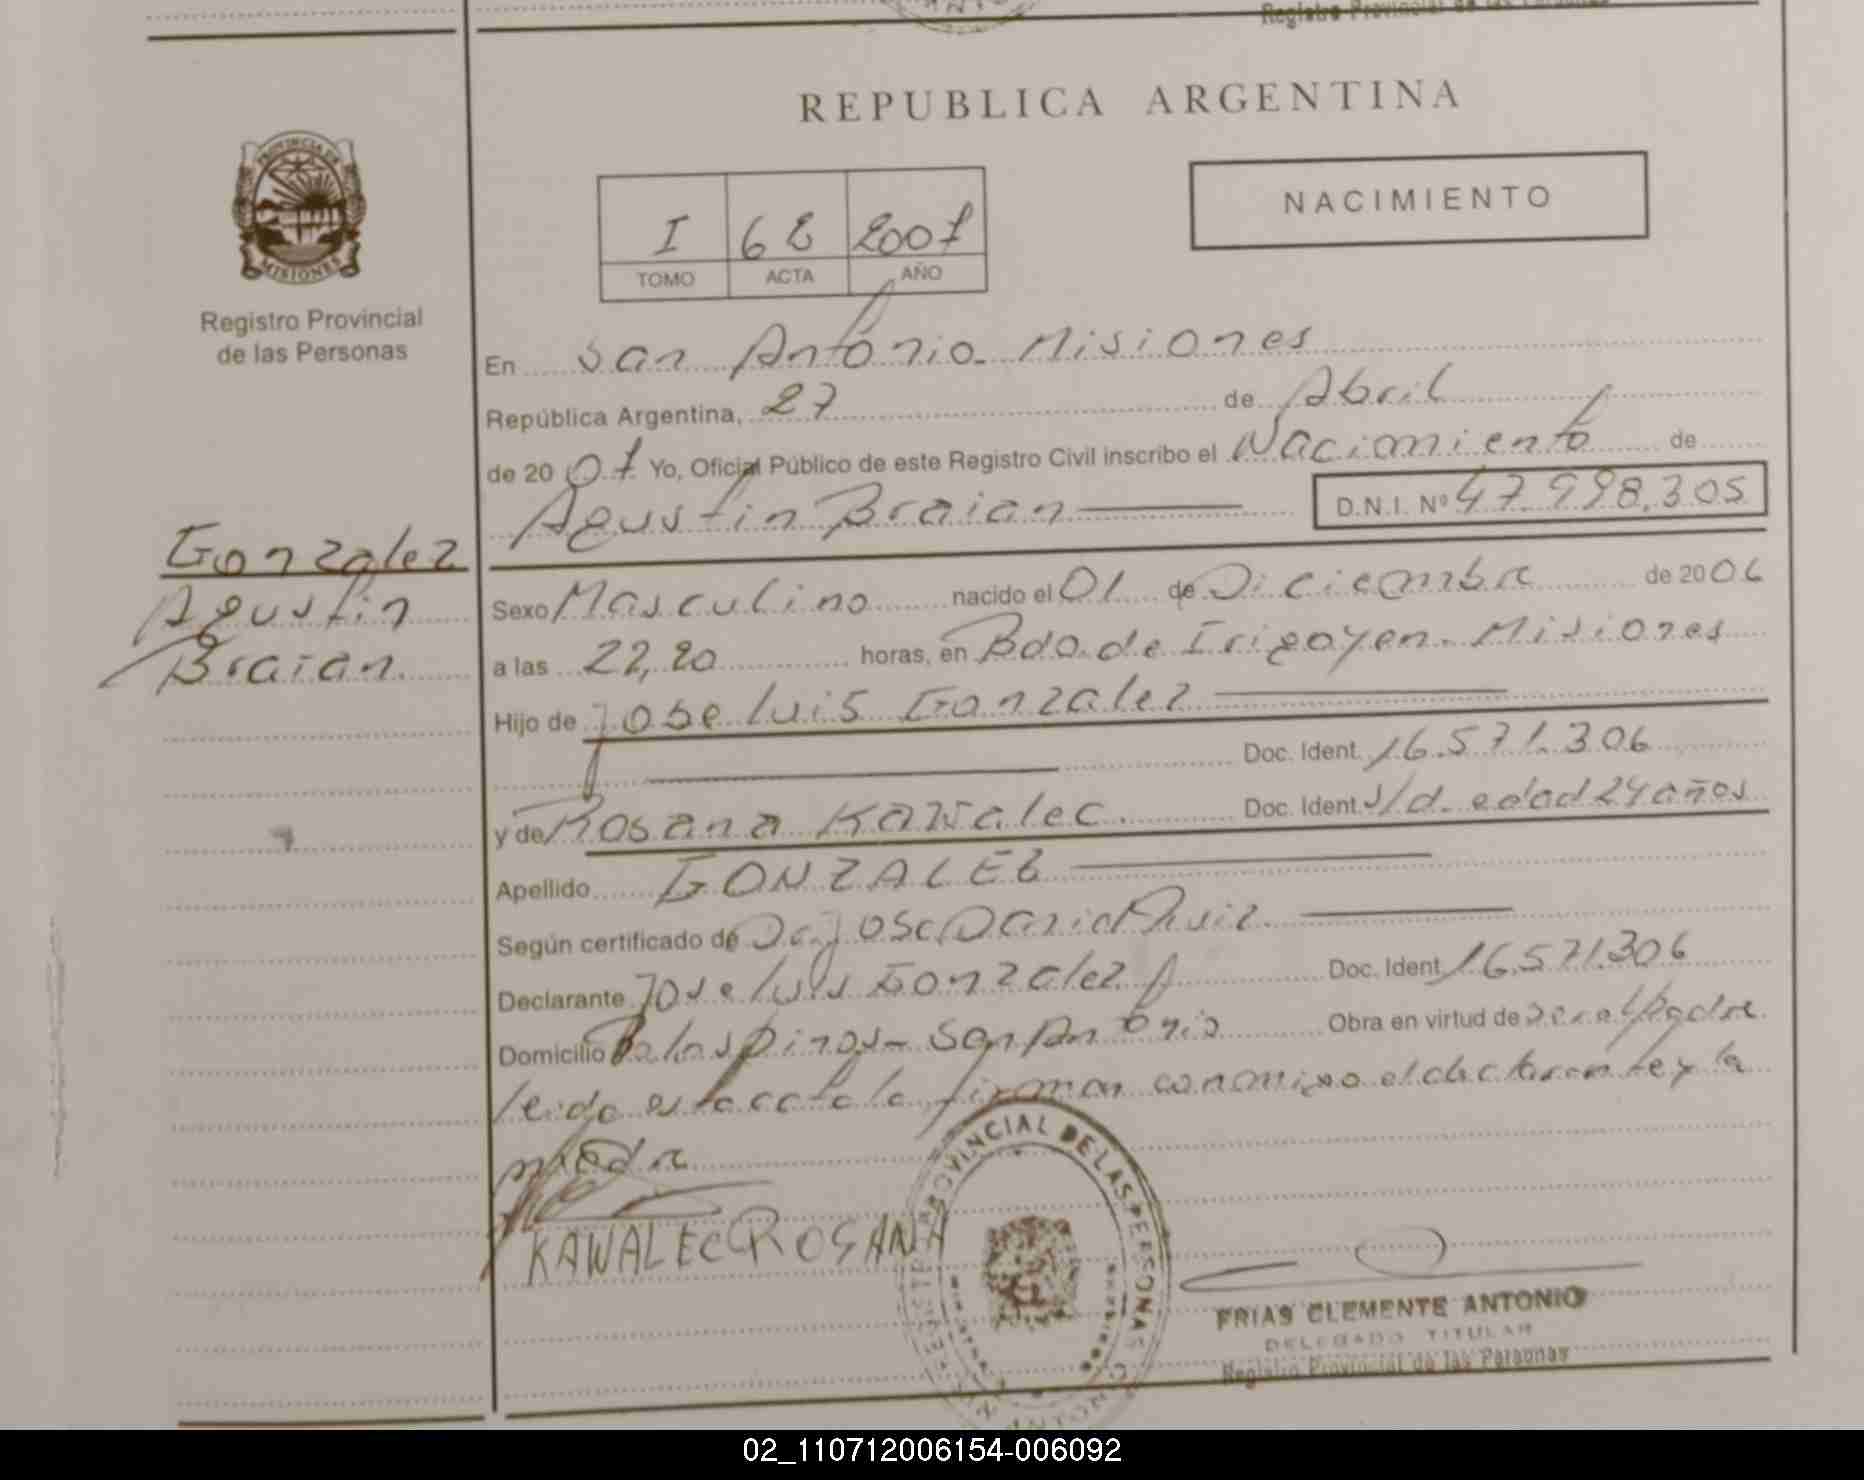 Registro Provincial de las Personas
REPUBLICA ARGENTINA
PROVINCIA DE
MISIONES
Registro Provincial
de las Personas
I 62 2007
TOMO ACTA AÑO
NACIMIENTO
En San Antonio - Misiones
República Argentina, 27 de Abril
de 20 07 Yo, Oficial Público de este Registro Civil inscribo el Nacimiento de
Agustin Braian D.N.I. Nº 47.998.305
Gonzalez
Agustin
Braian
Sexo Masculino nacido el 01 de Diciembre de 2006
a las 22,20 horas, en Bdo. de Irigoyen - Misiones
Hijo de Jose Luis Gonzalez
Doc. Ident. 16.571.306
y de Rosana Kawalec Doc. Ident. S/d. edad 24 años
Apellido GONZALEZ
Según certificado de Jose Dario
Declarante Jose Luis Gonzalez Doc. Ident. 16.571.306
Domicilio San Antonio Obra en virtud de ser el Padre
leida esta acta la firman conmigo el declarante y la
madre
KAWALEC ROSANA
PROVINCIAL DE LAS PERSONAS
FRIAS CLEMENTE ANTONIO
DELEGADO TITULAR
Registro Provincial de las Personas
02_110712006154-006092